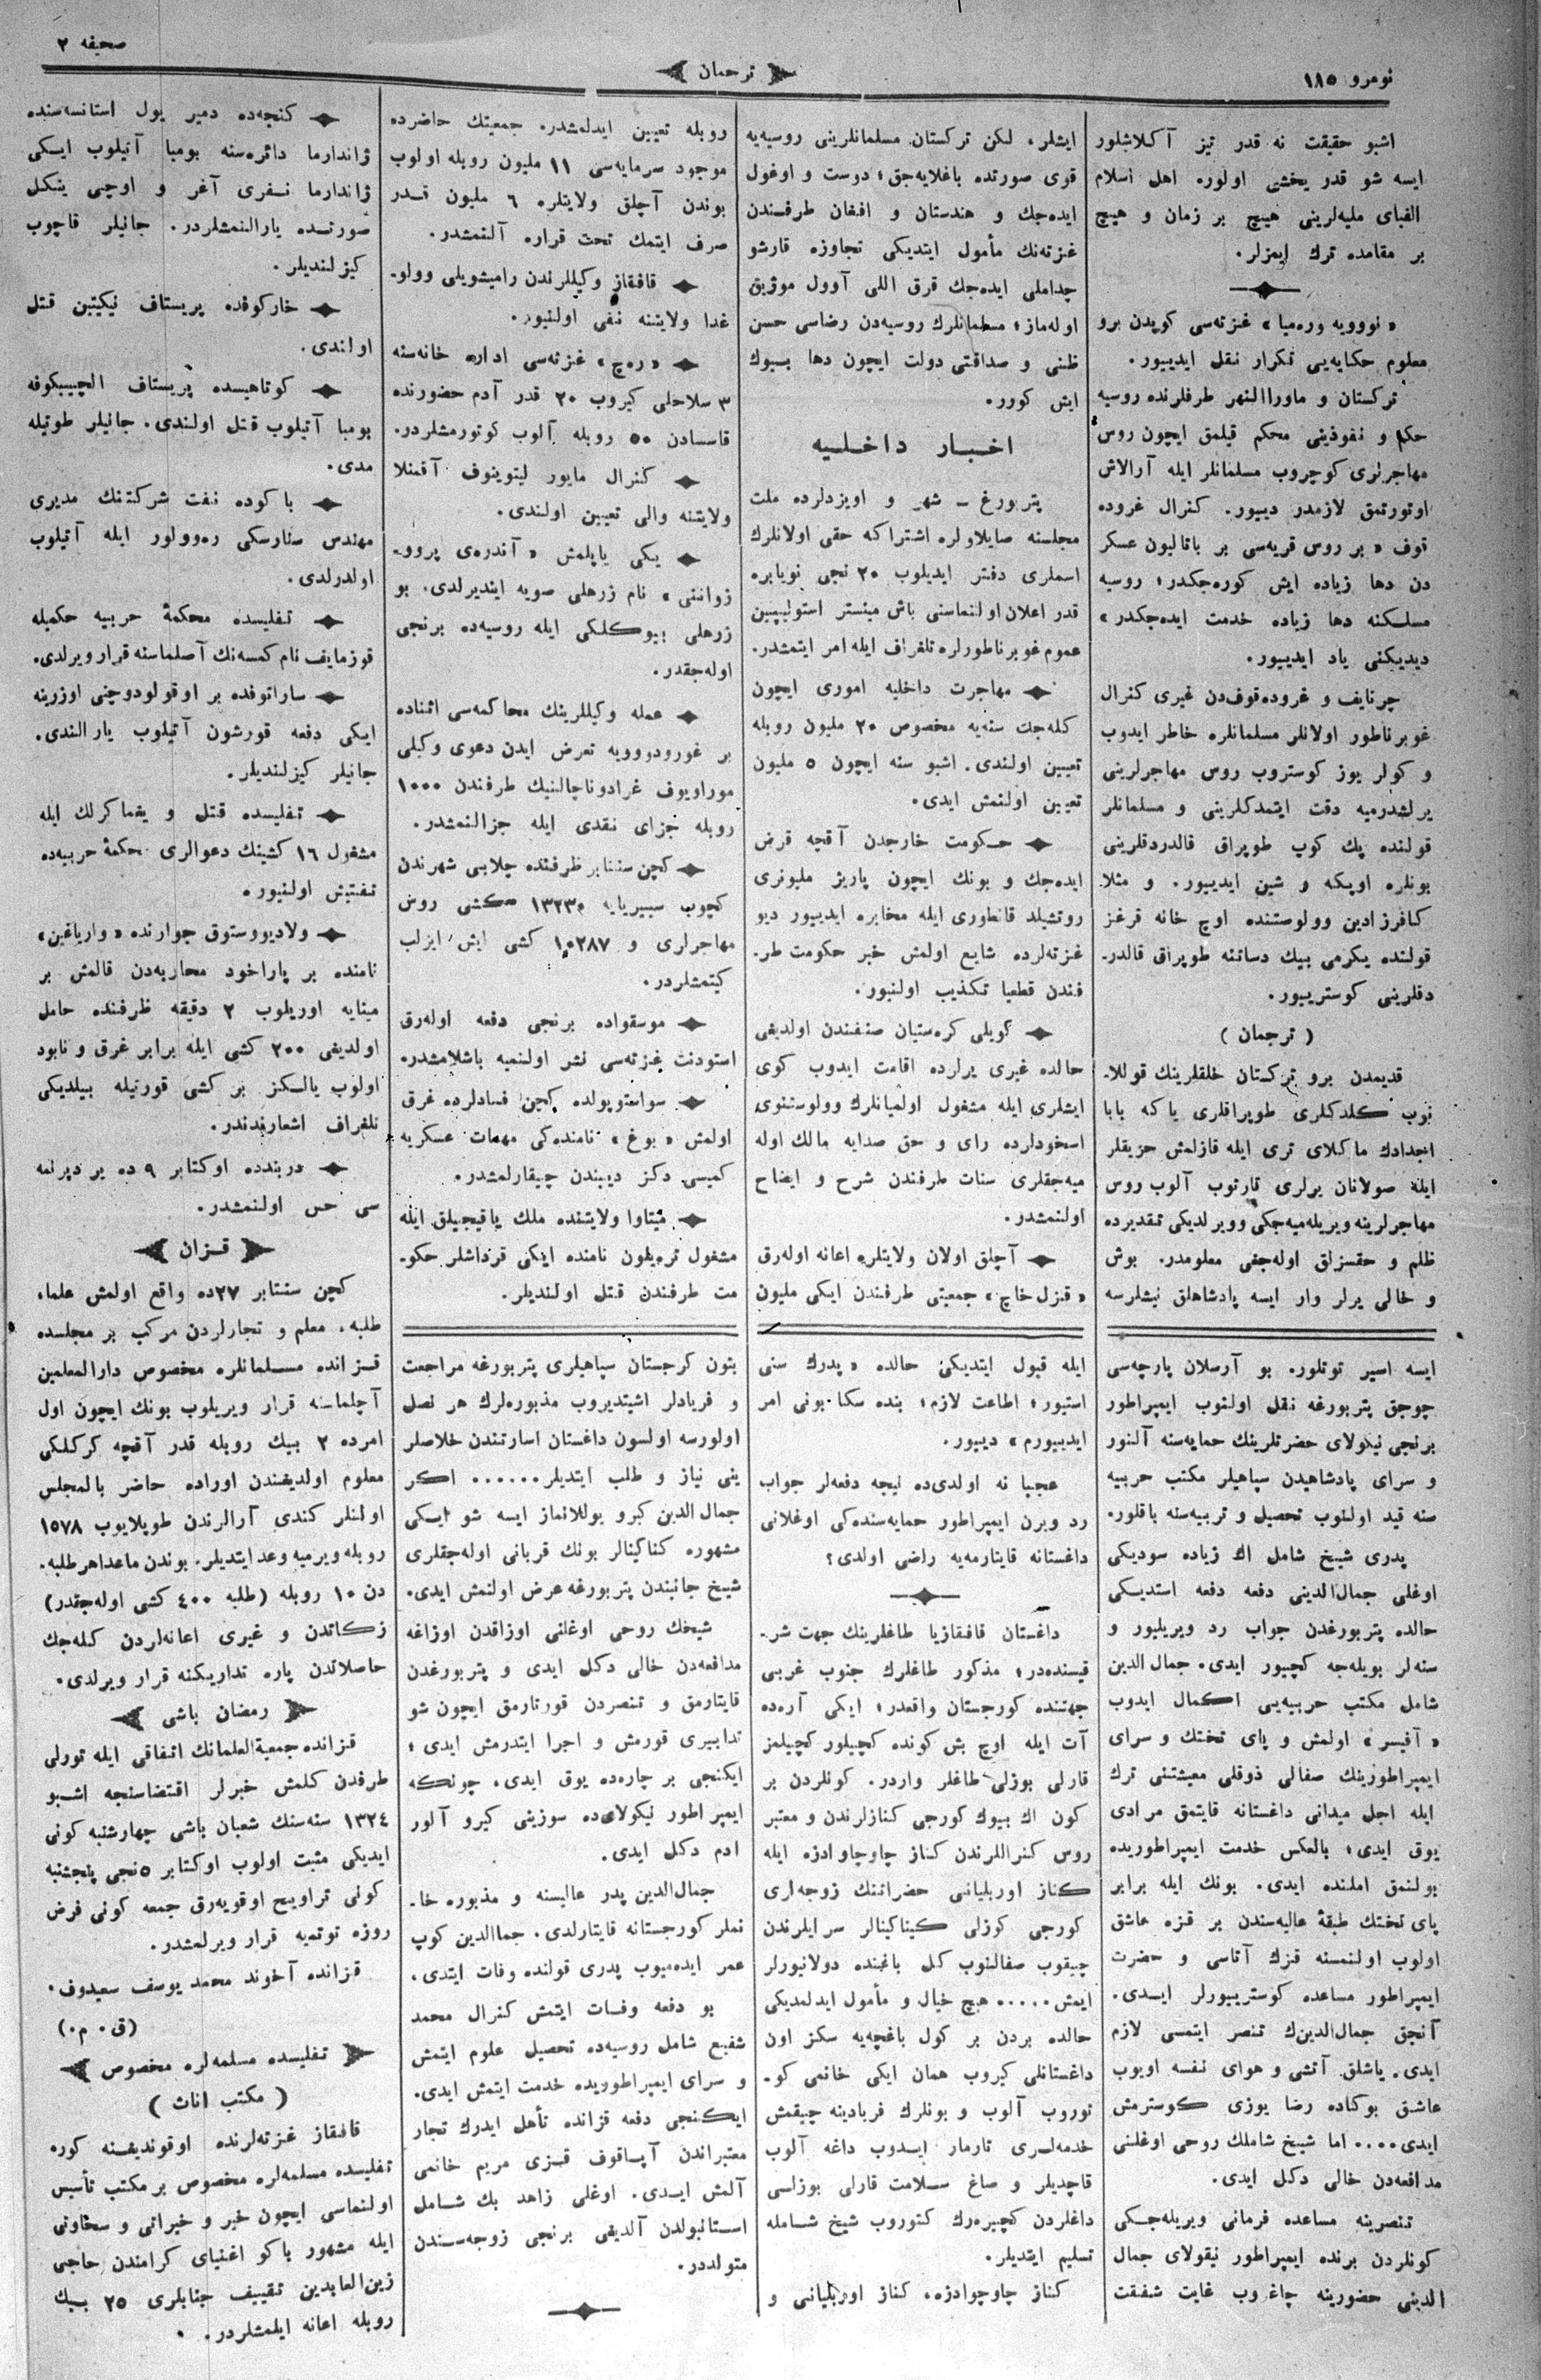 نومرو ١٨٥
ترجمان
صحيفه ٢
اشبو حقيقت نه قدر تيز آكلاشلور
ايسه شو قدر يخشى اولور. اهل اسلام
الفباى مليه‌لرينى هيچ بر زمان و هيچ
بر مقامده ترك ايمزلر.
« نوويه وره‌ميا » غزته‌سى كوپدن برو
معلوم حكايه‌يى تكرار نقل ايديیور.
تركستان و ماوراالنهر طرفلرنده روسيه
حكم و نفوذينى محكم قيلمق ايچون روس
مهاجرلرى كوچروب مسلمانلر ايله آرالاش
اوتورتمق لازمدر ديیور. كنرال غروده
قوف « بر روس قريه‌سى بر باتاليون عسكر
دن دها زياده ايش كوره‌جكدر؛ روسيه
مسلكنه دها زياده خدمت ايده‌جكدر »
ديديكنى ياد ايديیور.
چرنايف و غروده‌قوف‌دن غيرى كنرال
غوبرناطور اولانلر مسلمانلره خاطر ايدوب
و كولر يوز كوستروب روس مهاجرلرينى
يرلشدرميه دقت ايتمدكلرينى و مسلمانلر
قولنده پك كوپ طوپراق قالدردقلرينى
بونلره اوپكه و شين ايديیور. و مثلا
كافرزادين وولوستنده اوچ خانه قرغز
قولنده يكرمى بيك دساتنه طوپراق قالدر-
دقلرينى كوستريیور.
( ترجمان )
قديمدن برو تركستان خلقلرينك قوللا-
نوب كلدكلرى طوپراقلرى ياكه بابا
اجدادك ماكلاى ترى ايله قازلمش حزيقلر
ايله صولانان يرلرى تارتوب آلوب روس
مهاجرلرينه ويريله‌ميه‌جكى ووير لديكى تقديرده
ظلم و حقسزلق اوله‌جغى معلومدر. بوش
و خالى يرلر وار ايسه پادشاهلق نيشلرسه
ايشلر. لكن تركستان مسلمانلرينى روسيه‌يه
قوى صورتده باغلايه‌جق؛ دوست و اوغول
ايده‌جك و هندستان و افغان طرفندن
غزته‌نك مأمول ايتديكى تجاوزه قارشو
چداملى ايده‌جك قرق اللى آوول موژيق
اوله‌ماز؛ مسلمانلرك روسيه‌دن رضاسى حسن
ظنى و صداقتى دولت ايچون دها بيوك
ايش كورر.
اخبار داخليه
پتربورغ ــ شهر و اويزدلرده ملت
مجلسنه صايلاولره اشتراكه حقى اولانلرك
اسملرى دفتر ايديلوب ٢٠ نجى نويابره
قدر اعلان اولنماسنى باش مينستر استوليپين
عموم غوبرناطورلره تلغراف ايله امر ايتمشدر.
مهاجرت داخليه امورى ايچون
كله‌جك سنه‌يه مخصوص ٢٠ مليون روبله
تعيين اولندى. اشبو سنه ايچون ٥ مليون
تعيين اولنمش ايدى.
حكومت خارجدن آقچه قرض
ايده‌جك و بونك ايچون پاريژ مليونرى
روتشيلد قانطورى ايله مخابره ايديیور ديو
غزته‌لرده شايع اولمش خبر حكومت طر-
فندن قطعيا تكذيب اولنيور.
كويلى كره‌ستيان صنفندن اولديغى
حالده غيرى يرلرده اقامت ايدوب كوى
ايشلرى ايله مشغول اولميانلرك وولوستنوى
اسخودلرده راى و حق صدايه مالك اوله
ميه‌جقلرى سنات طرفندن شرح و ايضاح
اولنمشدر.
آچلق اولان ولايتلره اعانه اوله‌رق
« قزل خاچ » جمعيتى طرفندن ايكى مليون
روبله تعيين ايدلمشدر. جمعيتك حاضرده
موجود سرمايه‌سى ١١ مليون روبله اولوب
بوندن آچلق ولايتلره ٦ مليون قدر
صرف ايتمك تحت قراره آلنمشدر.
قافقاز وكيللرندن راميشويلى وولو-
غدا ولايتنه نفى اولنيور.
« ره‌چ » غزته‌سى اداره خانه‌سنه
٣ سلاحلى كيروب ٢٠ قدر آدم حضورنده
قاسسادن ٥٠ روبله آلوب كوتورمشلردر.
كنرال مايور ليتوينوف آقمنلا
ولايتنه والى تعيين اولندى.
يكى ياپلمش « آندره‌ى پروو-
زواننى » نام زرهلى صويه ايندیرلدى. بو
زرهلى بيوكلكى ايله روسيه‌ده برنجى
اوله‌جقدر.
عمله وكيللرينك محاكمه‌سى اثناده
بر غورودوويه تعرض ايدن دعوى وكيلى
موراويوف غرادوناچالنيك طرفندن ١٠٠٠
روبله جزاى نقدى ايله جزالنمشدر.
كچن سنتابر ظرفنده چلابى شهرندن
كچوب سيبيريايه ١٣٢٣٠ كشى روس
مهاجرلرى و ١٠٢٨٧ كشى ايش ايزلب
كيتمشلردر.
موسقواده برنجى دفعه اوله‌رق
استودنت غزته‌سى نشر اولنميه باشلامشدر.
سواستوپولده كچن فسادلرده غرق
اولمش « بوغ » نامنده‌كى مهمات عسكريه
كميسى دكز ديبندن چيقارلمشدر.
ميتاوا ولايتنده ملك ياقيجيلق ايله
مشغول تره‌يلون نامنده ايكى قرداشلر حكو-
مت طرفندن قتل اولنديلر.
كنجه‌ده دمير يول استانسه‌سنده
ژاندارما دائره‌سنه بومبا آتيلوب ايكى
ژاندارما نفرى آغر و اوچى ينكل
صورتده يارالنمشلردر. جانيلر قاچوب
كيزلنديلر.
خاركوفده پريستاف نيكيتين قتل
اولندى.
كوتاهيسده پريستاف الچيبيكوفه
بومبا آتيلوب قتل اولندى. جانيلر طوتيله
مدى.
باكوده نفت شركتنك مديرى
مهندس سنارسكى ره‌وولور ايله آتيلوب
اولدرلدى.
تفليسده محكمهٔ حربيه حكميله
قوزمايف نام كمسه‌نك آصلماسنه قرار ويرلدى.
ساراتوفده بر اوقولودوچنى اوزرينه
ايكى دفعه قورشون آتيلوب يارالندى.
جانيلر كيزلنديلر.
تفليسده قتل و يغماكرلك ايله
مشغول ١٦ كشينك دعوالرى محكمهٔ حربيه‌ده
تفتيش اولنيور.
ولاديووستوق جوارنده « وارياغين »
نامنده بر پاراخود محاربه‌دن قالمش بر
مينايه اوريلوب ٢ دقيقه ظرفنده حامل
اولديغى ٢٠٠ كشى ايله برابر غرق و نابود
اولوب يالكز بر كشى قورتيله بيلديكى
تلغراف اشعارندندر.
دربندده اوكتابر ٩ ده ير دپرنمه
سى حس اولنمشدر.
قزان
كچن سنتابر ٢٧ده واقع اولمش علما،
طلبه، معلم و تجارلردن مركب بر مجلسده
قزانده مسلمانلره مخصوص دارالمعلمين
آچلماسنه قرار ويريلوب بونك ايچون اول
امرده ٢ بيك روبله قدر آقچه كركلكى
معلوم اولديغندن اوراده حاضر بالمجلس
اولنلر كندى آرالرندن طوپلايوب ١٥٧٨
روبله ويرميه وعد ايتديلر. بوندن ماعدا هر طلبه-
دن ١٠ روبله (طلبه ٤٠٠ كشى اوله‌جقدر)
زكاتدن و غيرى اعانه‌لردن كله‌جك
حاصلاتدن پاره تداريكنه قرار ويرلدى.
رمضان باشى
قزانده جمعية العلمانك اتفاقى ايله تورلى
طرفدن كلمش خبرلر اقتضاسنجه اشبو
١٣٢٤ سنه‌سنك شعبان باشى چهارشنبه كونى
ايديكى مثبت اولوب اوكتابر ٥نجى پنجشنبه
كونى تراويح اوقويه‌رق جمعه كونى فرض
روزه توتميه قرار ويرلمشدر.
قزانده آخوند محمد يوسف سعيدوف.
(ق. م.)
تفليسده مسلمه‌لره مخصوص
( مكتب اناث )
قافقاز غزته‌لرنده اوقونديغنه كوره
تفليسده مسلمه‌لره مخصوص بر مكتب تأسيس
اولنماسى ايچون خير و خيراتى و سخاوتى
ايله مشهور باكو اغنياى كرامندن حاجى
زين‌العابدين تقييف جنابلرى ٢٥ بيك
روبله اعانه ايلمشلردر.
ايسه اسير توتلور. بو آرسلان پارچه‌سى
چوجق پتربورغه نقل اولنوب ايمپراطور
برنجى نيكولاى حضرتلرينك حمايه‌سنه آلنور
و سراى پادشاهيدن سپاهيلر مكتب حربيه
سنه قيد اولنوب تحصيل و تربيه‌سنه باقلور.
پدرى شيخ شامل اك زياده سوديكى
اوغلى جمال‌الدينى دفعه دفعه استديكى
حالده پتربورغدن جواب رد ويريليور و
سنه‌لر بويله‌جه كچيور ايدى. جمال الدين
شامل مكتب حربيه‌يى اكمال ايدوب
« آفيسر » اولمش و پاى تختك و سراى
ايمپراطورينك صفالى ذوقلى معيشتنى ترك
ايله اجل ميدانى داغستانه قايتمق مرادى
يوق ايدى؛ بالعكس خدمت ايمپراطوريده
بولنمق املنده ايدى. بونك ايله برابر
پاى تختك طبقهٔ عاليه‌سندن بر قزه عاشق
اولوب اولنمسنه قزك آتاسى و حضرت
ايمپراطور مساعده كوستريیورلر ايدى.
آنجق جمال‌الدين‌ك تنصر ايتمسى لازم
ايدى. ياشلق آتشى و هواى نفسه اويوب
عاشق بوكاده رضا يوزى كوسترمش
ايدى.... اما شيخ شاملك روحى اوغلنى
مدافعه‌دن خالى دكل ايدى.
تنصرينه مساعده فرمانى ويريله‌جكى
كونلردن برنده ايمپراطور نيقولاى جمال
الدينى حضورينه چاغروب غايت شفقت
ايله قبول ايتديكى حالده « پدرك سنى
استيور؛ اطاعت لازم؛ بنده سكا بونى امر
ايديیورم » ديیور.
عجبا نه اولدى‌ده نيجه دفعه‌لر جواب
رد ويرن ايمپراطور حمايه‌سنده‌كى اوغلانى
داغستانه قايتارمه‌يه راضى اولدى؟
داغستان قافقازيا طاغلرينك جهت شر-
قيسنده‌در؛ مذكور طاغلرك جنوب غربى
جهتنده كورجستان واقعدر؛ ايكى آره‌ده
آت ايله اوچ بش كونده كچيلور كچيلمز
قارلى بوزلى طاغلر واردر. كونلردن بر
كون اك بيوك كورجى كنازلرندن و معتبر
روس كنراللرندن كناز چاوچاوادزه ايله
كناز اوربليانى حضراتنك زوجه‌لرى
كورجى كوزلى كينا‌كينالر سرايلرندن
چيقوب صفالنوب كل باغنده دولانيورلر
ايمش..... هيچ خيال و مأمول ايدلمديكى
حالده بردن بر كول باغچه‌يه سكز اون
داغستانلى كيروب همان ايكى خانمى كو-
توروب آلوب و بونلرك فريادينه چيقمش
خدمه‌لرى تارمار ايدوب داغه آلوب
قاچديلر و صاغ سلامت قارلى بوزلى
داغلردن كچيره‌رك كتوروب شيخ شامله
تسليم ايتديلر.
كناز چاوچوادزه، كناز اوربليانى و
بتون كرجستان سپاهيلرى پتربورغه مراجعت
و فريادلر اشيتديروب مذبوره‌لرك هر نصل
اولورسه اولسون داغستان اسارتندن خلاصلر
ينى نياز و طلب ايتديلر...... اكر
جمال الدين كيرو يوللانماز ايسه شو ايكى
مشهوره كناكينالر بونك قربانى اوله‌جقلرى
شيخ جانبندن پتربورغه عرض اولنمش ايدى.
شيخك روحى اوغلنى اوزاقدن اوزاغه
مدافعه‌دن خالى دكل ايدى و پتربورغدن
قايتارمق و تنصردن قورتارمق ايچون شو
تدابيرى قورمش و اجرا ايتدرمش ايدى؛
ايكنجى بر چاره‌ده يوق ايدى. چونكه
ايمپراطور نيكولاى‌ده سوزينى كيرو آلور
ادم دكل ايدى.
جمال‌الدين پدر عاليسنه و مذبوره خا-
نملر كورجستانه قايتارلدى. جماالدين كوپ
عمر ايده‌ميوب پدرى قولنده وفات ايتدى.
بو دفعه وفات ايتمش كنرال محمد
شفيع شامل روسيه‌ده تحصيل علوم ايتمش
و سراى ايمپراطوريده خدمت ايتمش ايدى.
ايكنجى دفعه قزانده تأهل ايدرك تجار
معتبراندن آپاقوف قزى مريم خانمى
آلمش ايدى. اوغلى زاهد بك شامل
استانبولدن آلديغى برنجى زوجه‌سندن
متولددر.